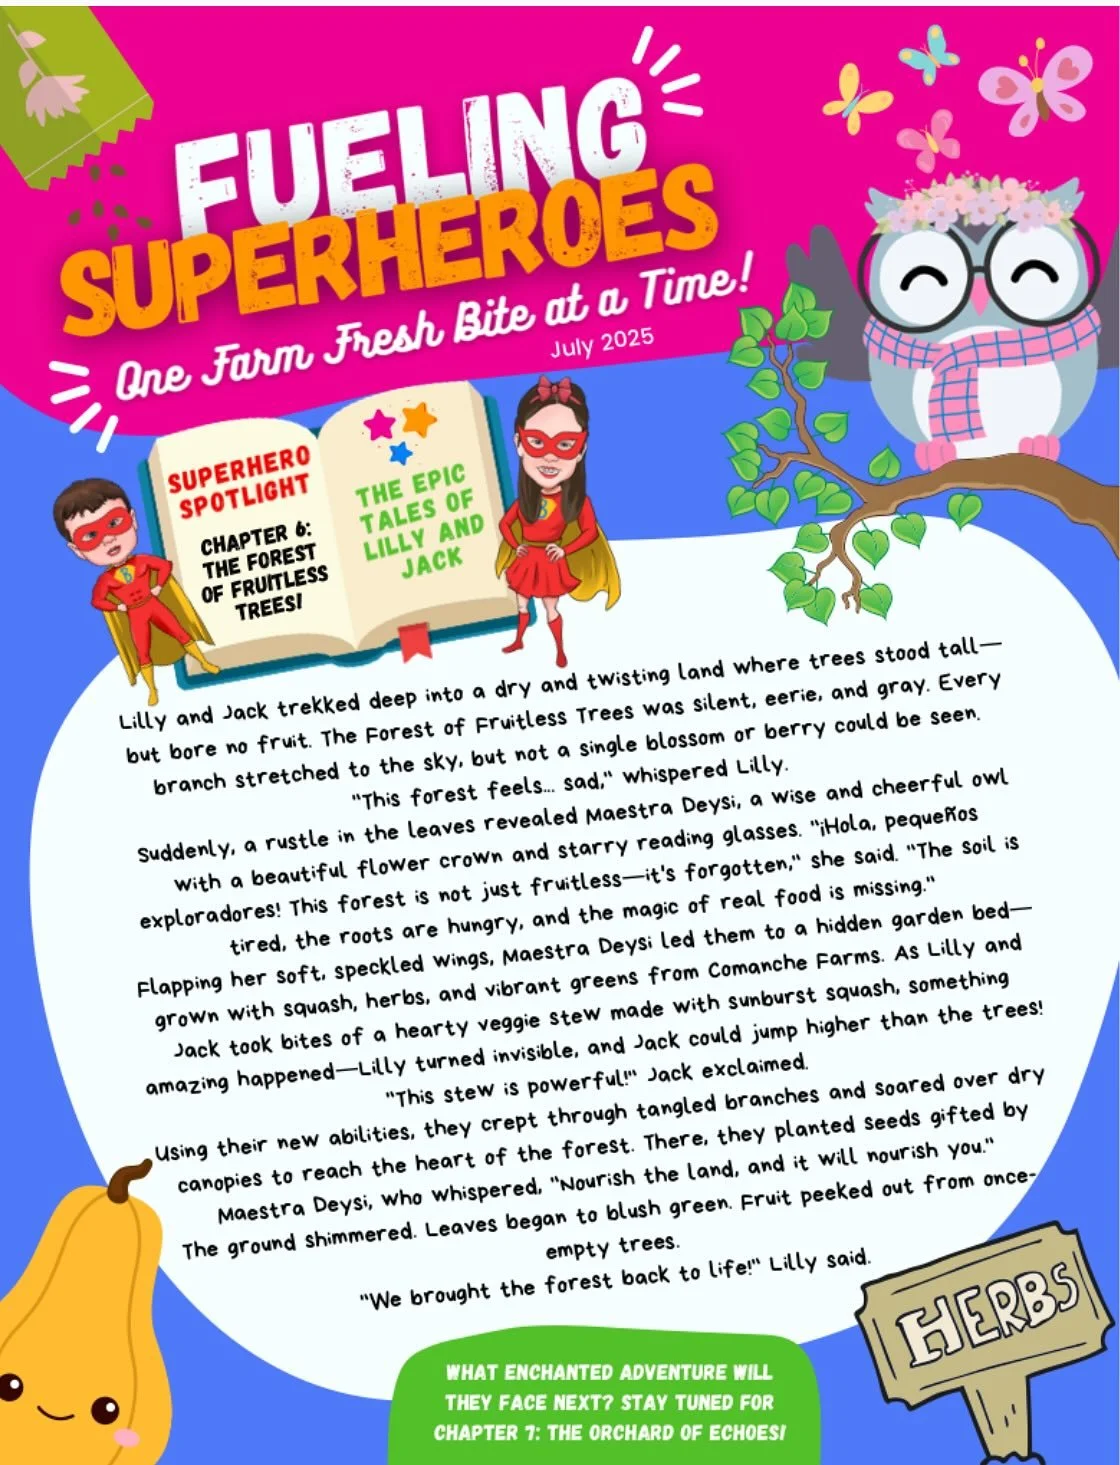 FUELING
SUPERHEROES
One Farm Fresh Bite at a Time!
July 2025
SUPERHERO
SPOTLIGHT
CHAPTER 6:
THE FOREST
OF FRUITLESS
TREES!
THE EPIC
TALES OF
LILLY AND
JACK
Lilly and Jack trekked deep into a dry and twisting land where trees stood tall—
but bore no fruit. The Forest of Fruitless Trees was silent, eerie, and gray. Every
branch stretched to the sky, but not a single blossom or berry could be seen.
"This forest feels... sad," whispered Lilly.
Suddenly, a rustle in the leaves revealed Maestra Deysi, a wise and cheerful owl
with a beautiful flower crown and starry reading glasses. "¡Hola, pequeños
exploradores! This forest is not just fruitless—it's forgotten," she said. "The soil is
tired, the roots are hungry, and the magic of real food is missing."
Flapping her soft, speckled wings, Maestra Deysi led them to a hidden garden bed—
grown with squash, herbs, and vibrant greens from Comanche Farms. As Lilly and
Jack took bites of a hearty veggie stew made with sunburst squash, something
amazing happened—Lilly turned invisible, and Jack could jump higher than the trees!
"This stew is powerful!" Jack exclaimed.
Using their new abilities, they crept through tangled branches and soared over dry
canopies to reach the heart of the forest. There, they planted seeds gifted by
Maestra Deysi, who whispered, "Nourish the land, and it will nourish you."
The ground shimmered. Leaves began to blush green. Fruit peeked out from once-
empty trees.
"We brought the forest back to life!" Lilly said.
HERBS
WHAT ENCHANTED ADVENTURE WILL
THEY FACE NEXT? STAY TUNED FOR
CHAPTER 7: THE ORCHARD OF ECHOES!